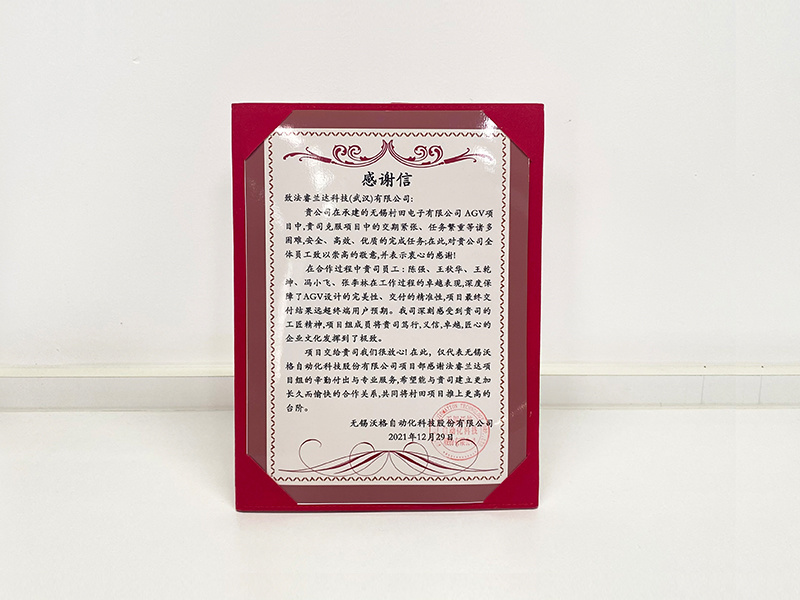 感谢信
致法睿兰达科技(武汉)有限公司:
贵公司在承建的无锡村田电子有限公司AGV项
目中,贵司克服项目中的交期紧张、任务繁重等诸多
困难,安全、高效、优质的完成任务;在此,对贵公司全
体员工致以崇高的敬意,并表示衷心的感谢!
在合作过程中贵司员工:陈强、王秋华、王乾
坤、冯小飞、张李林在工作过程的卓越表现,深度保
障了AGV设计的完美性、交付的精准性,项目最终交
付结果远超终端用户预期。我司深刻感受到贵司的
工匠精神,项目组成员将贵司笃行,又信,卓越,匠心的
企业文化发挥到了极致。
项目交给贵司我们很放心!在此,仅代表无锡沃
格自动化科技股份有限公司项目部感谢法睿兰达项
目组的辛勤付出与专业服务,希望能与贵司建立更加
长久而愉快的合作关系,共同将村田项目推上更高的
台阶。
无锡沃格自动化科技股份有限公司
2021年12月29日